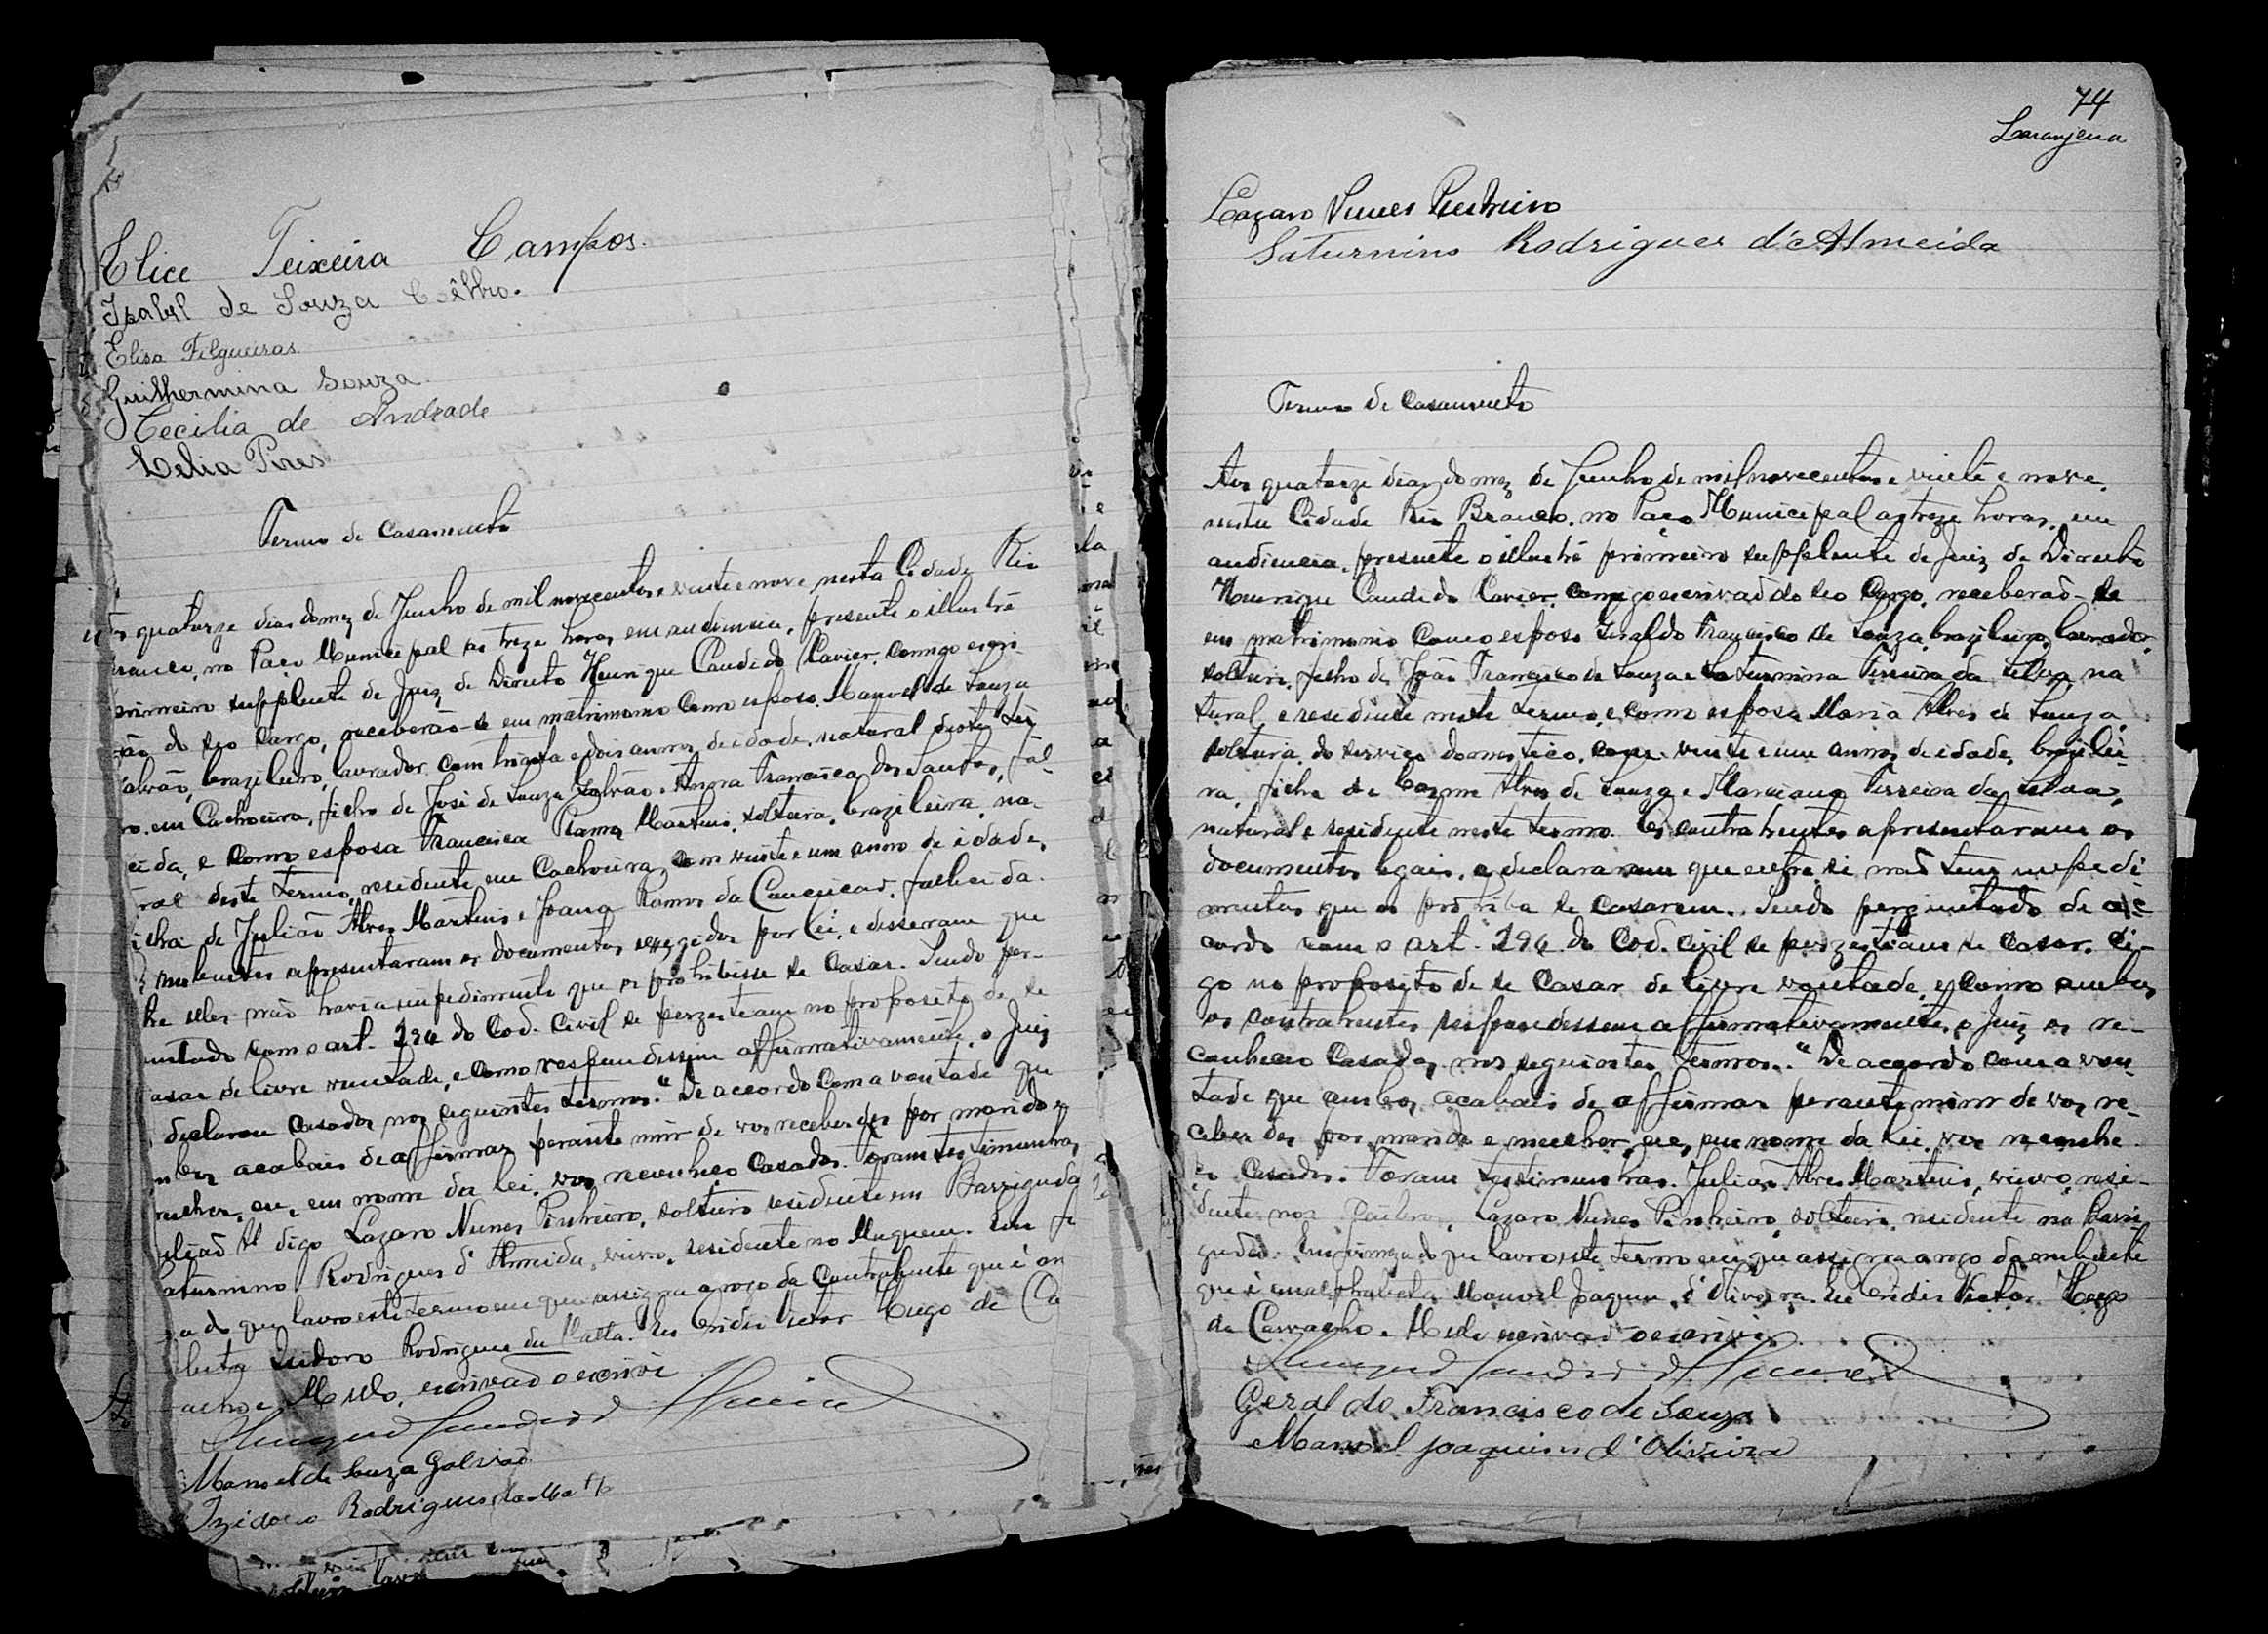 Elice Teixeira Campos.
Izabel de Souza Coêlho.
Elisa Filgueiras
Guilhermina Souza
Cecilia de Andrade
Celia Pires
Termo de Casamento
quatorze dias do mez de Junho de mil novecentos e vinte e nove, nesta Cidade Rio
ranco, no Paço Municipal as treze horas em audiencia, presente o illustre
primeiro supplente de Juiz de Direito Henrique Candido Xavier, comigo escri-
vão do seo Cargo, receberão-se em matrimonio como esposo Manoel de Souza
alvão, brazileiro, lavrador com trinta e dois annos de idade, natural deste ter
mo em Cachoeira, filho de José de Souza Galvão e Anna Francisca dos Santos, fal-
cida, e como esposa Francisca Ramos Martins, solteira, brazileira, na-
ral deste termo, residente em Cachoeira, com vinte e um anno de idade,
ilha de Julião Alves Martins e Joana Ramos da Conceicão, fallecida.
nubentes apresentaram os documentos exigidos por lei, e disseram que
tre elles não havia impedimento que os prohibisse de casar. Sendo per-
untado com o art. 194 do Cod. Civil se perzestiam no proposito de se
asar de livre vontade, e como respondessem affirmativamente, o Juiz
declarou casados nos seguintes termos: "De accordo com a vontade que
mbos acabais de affirmar perante mim de vos receberdes por marido e
mulher, eu, em nome da lei, vos reconheço casados. Foram testimunhas
ulião Al digo Lazaro Nunes Pinheiro, solteiro residente em Barriguda
aturnino Rodrigues d'Almeida, viuvo, residente no Muquem. Em fir
a do que lavro este termo em que assigna a rogo da Contrahente que é an
beta Izidoro Rodrigues da Matta. Eu Victor Hugo de Ca
alho e Mello, escrivão o escrivi
Manoel de Souza Galvão
Izidoro Rodrigues da Matta
74
Laranjeira
Lazaro Nunes Pinheiro
Saturnino Rodrigues d'Almeida
Termo de Casamento
Aos quatorze dias do mez de Junho de mil novecentos e vinte e nove,
nesta Cidade Rio Branco, no Paço Municipal as treze horas, em
audiencia, presente o illustre primeiro supplente de Juiz de Direito
Henrique Candido Xavier, comigo escrivão do seo Cargo, receberão-se
em matrimonio como esposo Geraldo Francisco de Souza, brazileiro, lavrador,
solteiro, filho de João Francisco de Souza e Saturnina Ferreira da Silva, na
tural e residente neste termo, e como esposa Maria Alves de Souza,
solteira, do serviço domestico, com vinte e um annos de idade, brazilei-
ra, filha de Cosme Alves de Souza e Marciana Ferreira da Silva,
natural e residente neste termo. Os contrahentes apresentaram os
documentos legais, e declararam que entre si não tem impedi-
mentos que os prohiba de casarem. Sendo perguntado de ac-
cordo com o art. 194 do Cod. Civil se perzestiam de casar, di-
go no proposito de se casar de livre vontade, e como ambos
os contrahentes respondessem affirmativamente, o Juiz os re-
conheceo casados, nos seguintes termos: "De accordo com a von-
tade que ambos acabais de affirmar perante mim de vos re-
ceberdes por marido e mulher, eu, em nome da lei, vos reconhe-
ço casados. Foram testimunhas. Julião Alves Martins, viuvo, resi-
dente nos Lazaro Nunes Pinheiro solteiro, residente na Barri
guda. Em firmeza do que lavro este termo em que assigna a rogo da nubente
que é analphabeta Manoel Joaquim d'Oliveira. Eu Victor Hugo
de Carvalho e Mello escrivão o escrivi
Geraldo Francisco de Souza
Manoel Joaquim d'Oliveira